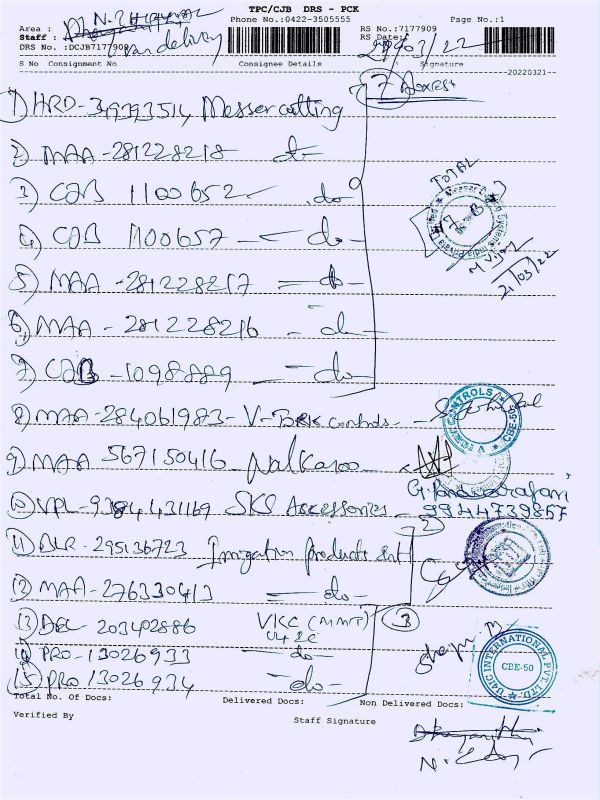 TPC/CJB DRS - PCK
Phone No.:0422-3505555 Page No.:1
Area :
Staff :
DRS No. :DCJB7177909
van delivery
RS No.:7177909
RS Date:
21/03/22
S No Consignment No Consignee Details Signature
--20220321--
7 Boxes
1) HRD- Messer cutting
2) MAA-281228218 -do-
3) CJB 1100652 -do-
4) CJB 1100657 -do-
5) MAA-281228217 -do-
6) MAA-281228216 -do-
7) CJB-1098889 -do-
TOTAL
7
21/03/22
8) MAA-284061983-V-Tork controls-
CONTROLS
CBE-
9) MAA 567150416-Nalkaroo
10) VPL-9384431169 SKS Accessories-
9944739857
2
11) BLR-295136723 Irrigation Products Int
12) MAA-276330413 -do-
13) DEL 203402886 VKC (MMT)
U4IC
3
14) PRO-13026933 -do-
15) PRO 13026934 -do-
U4IC INTERNATIONAL PVT LTD
CBE-50
Total No. Of Docs: Delivered Docs: Non Delivered Docs:
Verified By Staff Signature